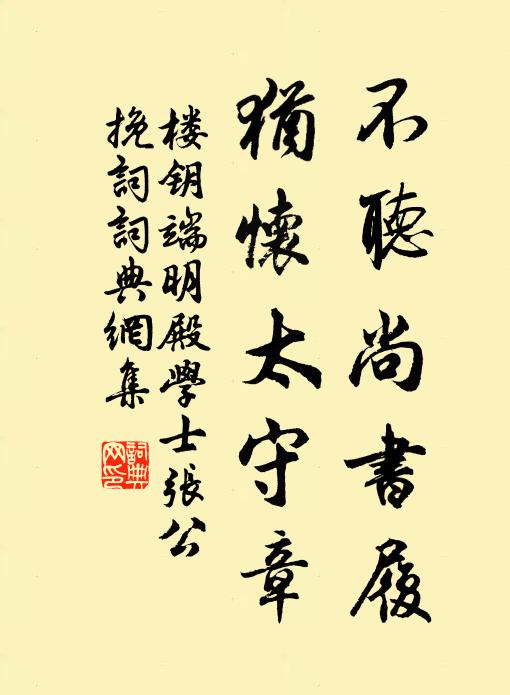 不聽尚書履
猶懷太守章
楼钥端明殿學士張公
挽詞詞典網集
詞典
网印